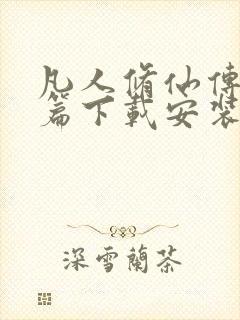 凡人脩仙傳
篇下載安裝
深雪蘭茶